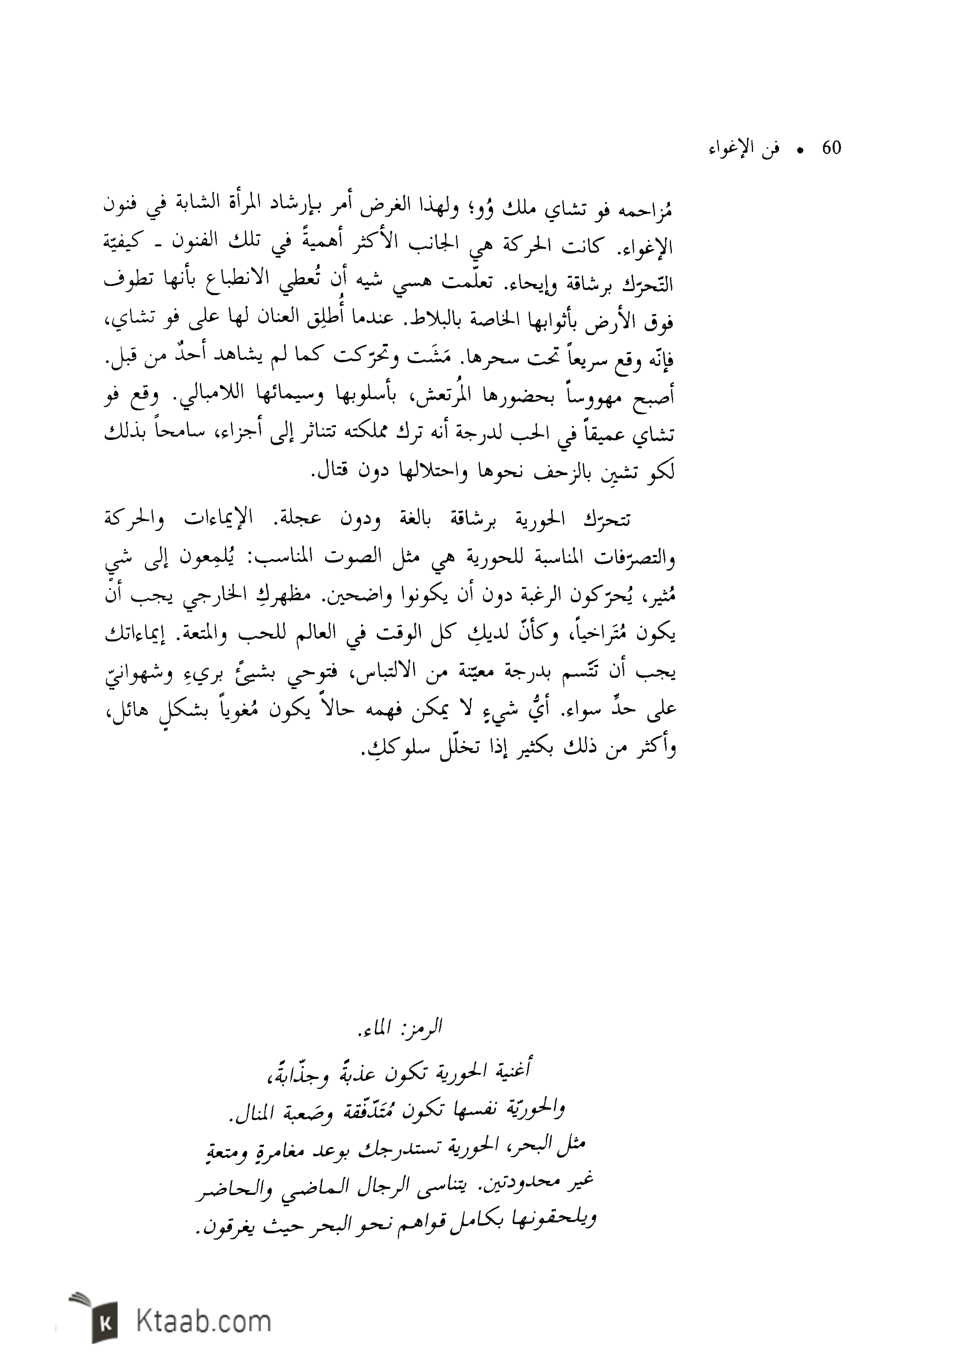 60 • فن الإغواء
مُزاحمه فو تشاي ملك وُو؛ ولهذا الغرض أمر بإرشاد المرأة الشابة في فنون
الإغواء. كانت الحركة هي الجانب الأكثر أهميةً في تلك الفنون ـ كيفيّة
التّحرّك برشاقة وإيحاء. تعلّمت هسي شيه أن تُعطي الانطباع بأنها تطوف
فوق الأرض بأثوابها الخاصة بالبلاط. عندما أُطلِق العنان لها على فو تشاي،
فإنّه وقع سريعاً تحت سحرها. مَشَت وتحرّكت كما لم يشاهد أحدٌ من قبل.
أصبح مهووساً بحضورها المُرتعش، بأسلوبها وسيمائها اللامبالي. وقع فو
تشاي عميقاً في الحب لدرجة أنه ترك مملكته تتناثر إلى أجزاء، سامحاً بذلك
لَكو تشين بالزحف نحوها واحتلالها دون قتال.
تتحرّك الحورية برشاقة بالغة ودون عجلة. الإيماءات والحركة
والتصرّفات المناسبة للحورية هي مثل الصوت المناسب: يُلمِعون إلى شيٍ
مُثير، يُحرّكون الرغبة دون أن يكونوا واضحين. مظهركِ الخارجي يجب أن
يكون مُتَراخياً، وكأنّ لديكِ كل الوقت في العالم للحب والمتعة. إيماءاتك
يجب أن تَتّسم بدرجة معيّنة من الالتباس، فتوحي بشيئٍ بريءِ وشهوانيّ
على حدٍّ سواء. أيُّ شيءٍ لا يمكن فهمه حالاً يكون مُغوياً بشكلٍ هائل،
وأكثر من ذلك بكثير إذا تخلّل سلوككِ.
الرمز: الماء.
أغنية الحورية تكون عذبةً وجذّابةً،
والحوريّة نفسها تكون مُتَدّفّقة وصَعبة المنال.
مثل البحر، الحورية تستدرجك بوعد مغامرةٍ ومتعةٍ
غير محدودتين. يتناسى الرجال الماضي والحاضر
ويلحقونها بكامل قواهم نحو البحر حيث يغرقون.
K Ktaab.com